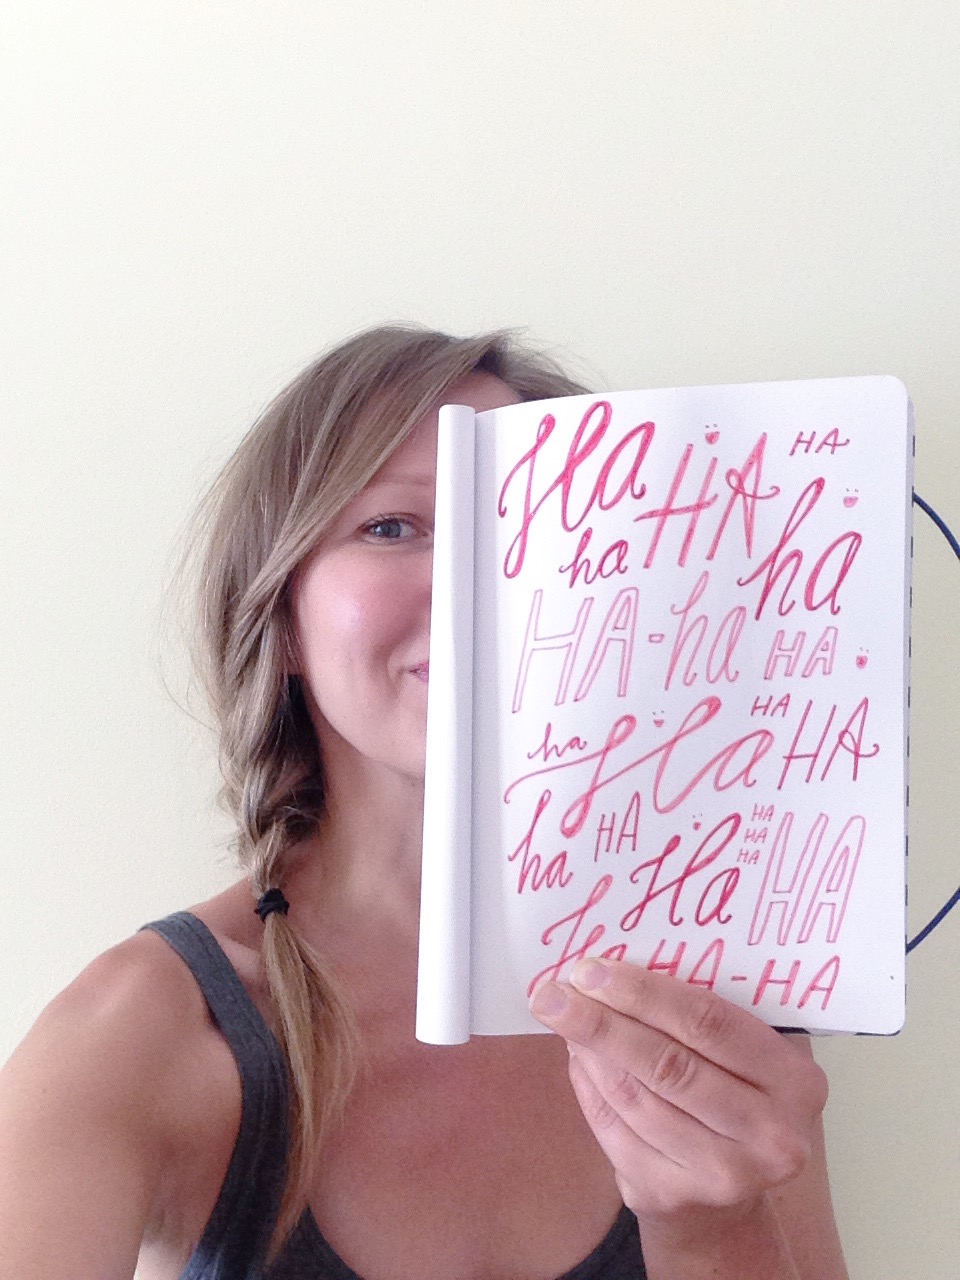 Ha HA HA
ha ha
HA-ha HA
ha Ha HA HA
ha HA Ha HA HA HA HA
Ha HA-HA